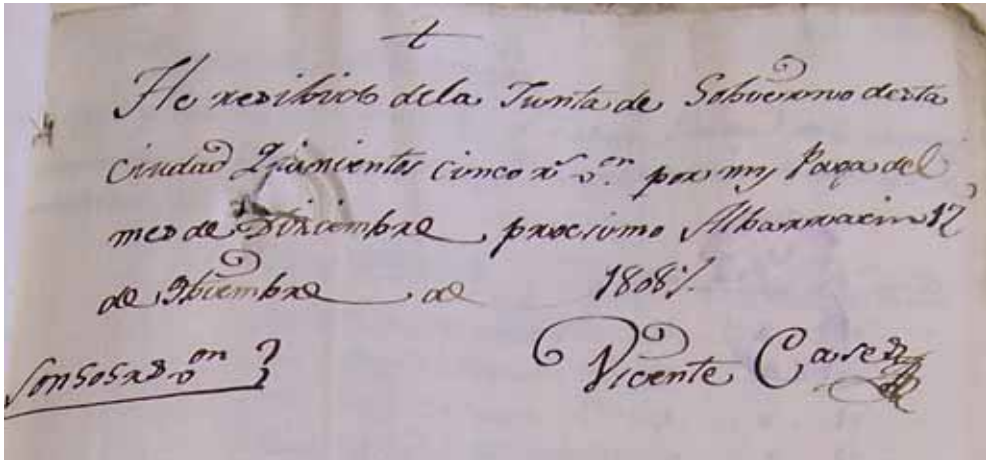 He resibido dela Junta de Gobierno desta
Ciudad Quinientos cinco rs. von. por my Paga del
mes de Diziembre procsimo Albarracin 17
de Nobiembre de 1808
Son 505 rs von
Vicente